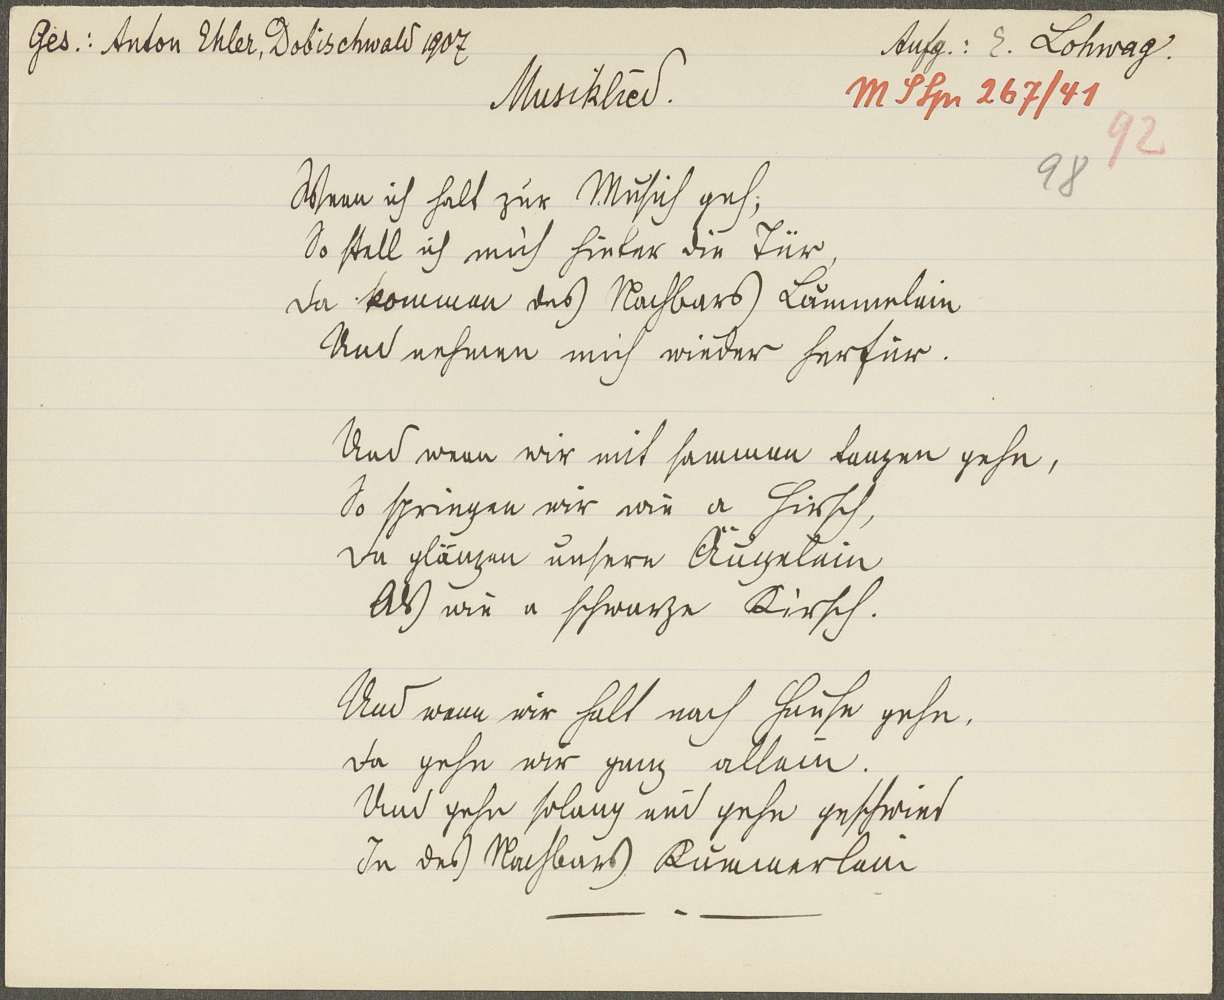 Ges.: Anton Ehler, Dobischwald 1907
Aufg.: E. Lohwag.
Musiklied.
M S Spr 267/41
92
98
Wenn ich halt zur Musich geh,
So stell ich mich hinter die Tür,
Da kommen des Nachbars Lämmelein
Und nehmen mich wieder herfür.
Und wenn wir mit sammen tanzen gehn,
So springen wir wie a Hirsch,
Da glänzen unsere Äugelein
Als wie a schwarze Kirsch.
Und wenn wir halt nach Hause gehn,
Da gehn wir ganz allein.
Und gehn solang und gehn geschwind
In des Nachbars Kammerlein